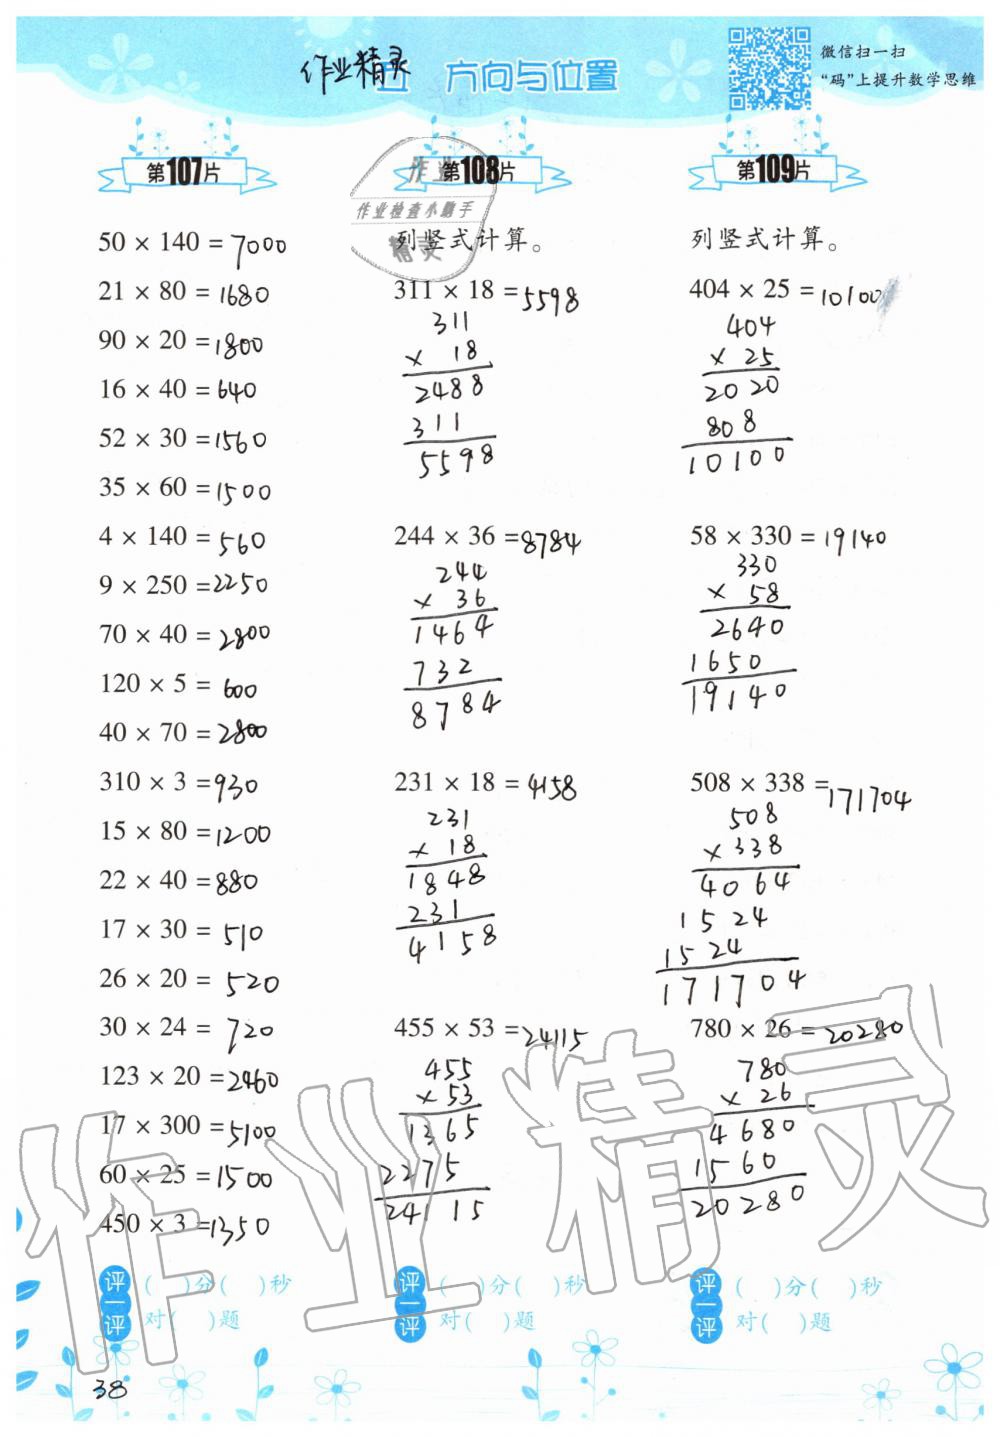 作业精灵
五 方向与位置
微信扫一扫
“码”上提升数学思维
第107片
50 × 140 = 7000
21 × 80 = 1680
90 × 20 = 1800
16 × 40 = 640
52 × 30 = 1560
35 × 60 = 1500
4 × 140 = 560
9 × 250 = 2250
70 × 40 = 2800
120 × 5 = 600
40 × 70 = 2800
310 × 3 = 930
15 × 80 = 1200
22 × 40 = 880
17 × 30 = 510
26 × 20 = 520
30 × 24 = 720
123 × 20 = 2460
17 × 300 = 5100
60 × 25 = 1500
450 × 3 = 1350
评一评
( )分( )秒
对( )题
第108片
作业
作业检查小助手
精灵
列竖式计算。
311 × 18 = 5598
311
× 18
2488
311
5598
244 × 36 = 8784
244
× 36
1464
732
8784
231 × 18 = 4158
231
× 18
1848
231
4158
455 × 53 = 24115
455
× 53
1365
2275
24115
评一评
( )分( )秒
对( )题
第109片
列竖式计算。
404 × 25 = 10100
404
× 25
2020
808
10100
58 × 330 = 19140
330
× 58
2640
1650
19140
508 × 338 = 171704
508
× 338
4064
1524
1524
171704
780 × 26 = 20280
780
× 26
4680
1560
20280
评一评
( )分( )秒
对( )题
38
作业精灵